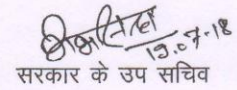 19.07.18
सरकार के उप सचिव